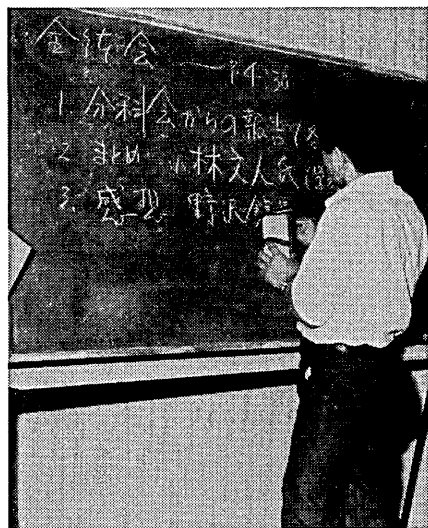 全体会
1 分科会からの報告
2 まとめ 小林文人氏
3. 感想 野沢